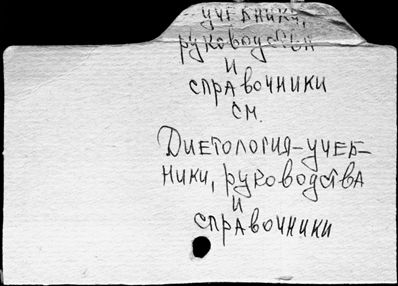 учебники,
руководства
и
справочники
см.
Диетология-учеб-
ники, руководства
и
справочники